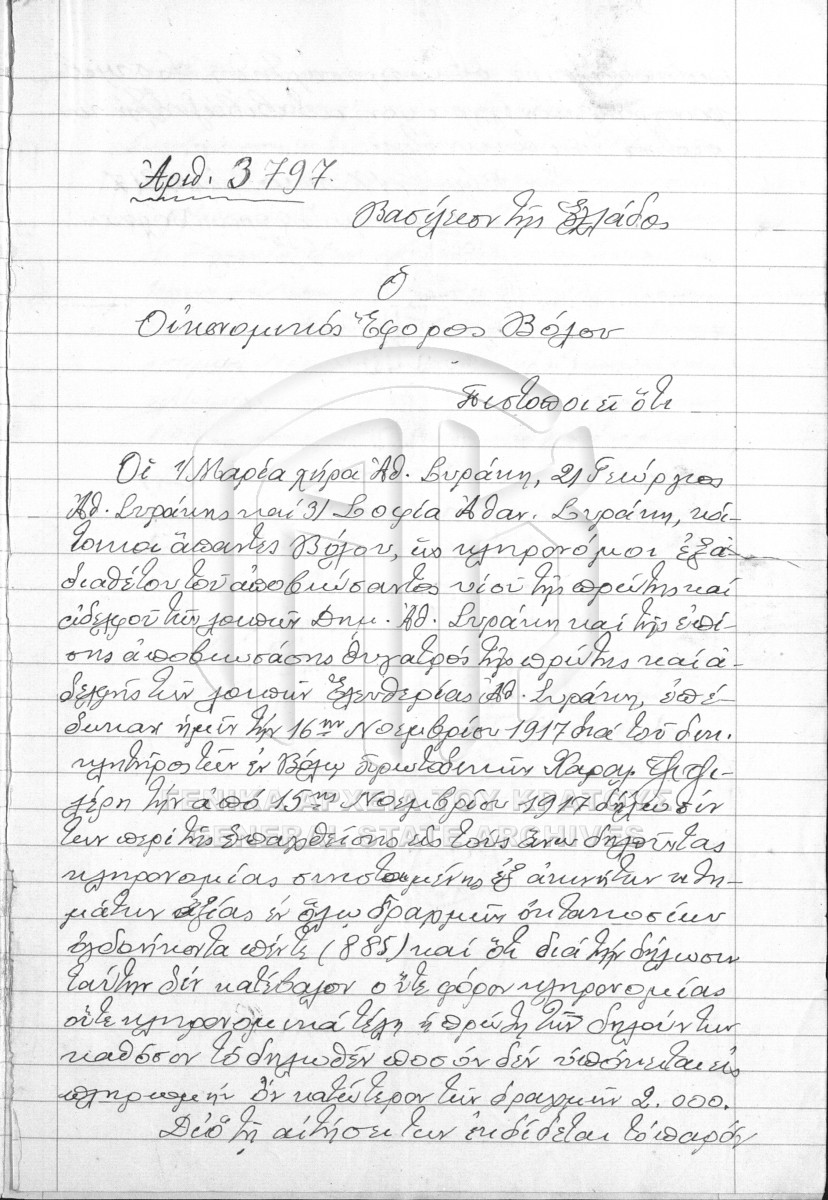 Ἀριθ. 3797.
Βασίλειον τῆς Ἑλλάδος
Ὁ
Οἰκονομικός Ἔφορος Βόλου
Πιστοποιεῖ ὅτι
Οἱ 1/ Μαρία χήρα Ἀθ. Συράκη, 2/ Γεώργιος
Ἀθ. Συράκης καί 3/ Σοφία Ἀθαν. Συράκη, κά-
τοικοι ἅπαντες Βόλου, ὡς κληρονόμοι ἐξ ἀ-
διαθέτου τοῦ ἀποβιώσαντος υἱοῦ τῆς πρώτης καί
ἀδελφοῦ τῶν λοιπῶν Δημ. Ἀθ. Συράκη καί τῆς ἐπί-
σης ἀποβιωσάσης θυγατρός τῆς πρώτης καί ἀ-
δελφῆς τῶν λοιπῶν Ἐλευθερίας Ἀθ. Συράκη, ὑπέ-
δωκαν ἡμῖν τήν 16ην Νοεμβρίου 1917 διά τοῦ δικ.
κλητῆρος τῶν ἐν Βόλῳ Πρωτοδικῶν Χαραλ.
τήν ἀπό 15ης Νοεμβρίου 1917 δήλωσίν
των περί τῆς ἐπαχθείσης εἰς τούς ἄνω δηλοῦντας
κληρονομίας συνισταμένης ἐξ ἀκινήτων κτη-
μάτων ἀξίας ἐν ὅλῳ δραχμῶν ὀκτακοσίων
ὀγδοήκοντα πέντε (885) καί ὅτι διά τήν δήλωσιν
ταύτην δέν κατέβαλον οὔτε φόρον κληρονομίας
οὔτε κληρονομικά τέλη ἡ πρώτη τῶν δηλούντων
καθόσον τό δηλωθέν ποσόν δέν ὑπόκειται εἰς
πληρωμήν ὄν κατώτερον τῶν δραχμῶν 2.000.
Διό τῇ αἰτήσει των ἐκδίδεται τό παρόν
ΓΕΝΙΚΑ ΑΡΧΕΙΑ ΤΟΥ ΚΡΑΤΟΥΣ
GENERAL STATE ARCHIVES